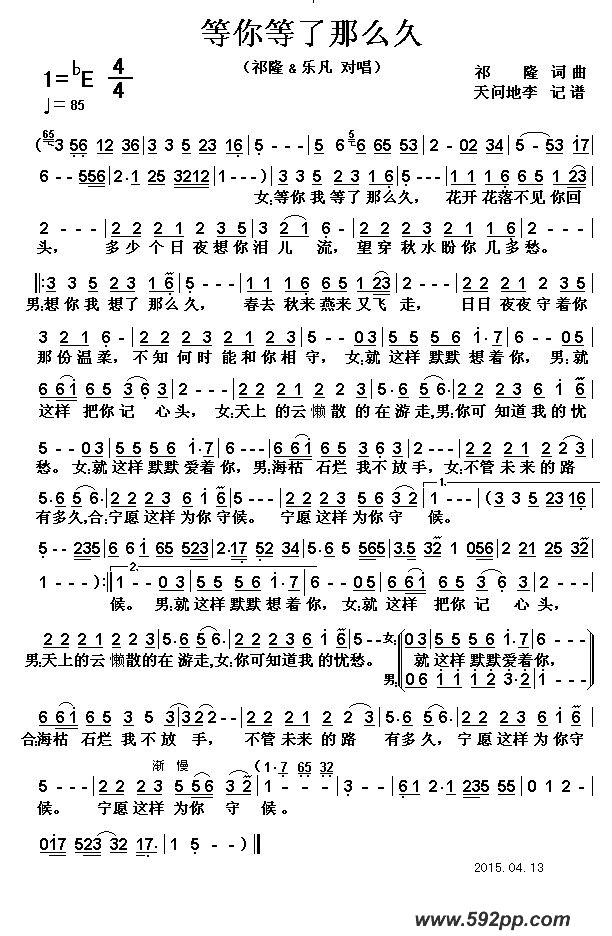 等你等了那么久
（祁隆 & 乐凡 对唱）
1=♭E 4/4
♩= 85
祁 隆 词曲
天问地李 记谱
( 65 3 56 12 36 | 3 3 5 23 16 | 5 - - - | 5 6 5 6 65 53 | 2 - 02 34 | 5 - 53 17 |
6 - - 556 | 2·1 25 3212 | 1 - - - ) | 3 3 5 2 3 1 6 | 5 - - - | 1 1 1 6 5 1 23 |
女:等你我等了那么久， 花开花落不见你回
2 - - - | 2 2 2 1 2 3 5 | 3 21 6 - | 2 2 2 3 2 1 1 6 | 2 - - - |
头， 多少个日夜想你泪儿 流，望穿秋水盼你几多愁。
‖: 3 3 5 2 3 1 6 | 5 - - - | 1 1 1 6 5 1 23 | 2 - - - | 2 2 2 1 2 3 5 |
男:想你我想了那么久， 春去秋来燕来又飞走， 日日夜夜守着你
3 2 1 6 · | 2 2 2 3 2 1 2 6 | 5 - - 0 3 | 5 5 5 6 1·7 | 6 - - 0 5 |
那份温柔，不知何时能和你相守，女:就这样默默想着你，男:就
6 6 1 6 5 3 6 3 | 2 - - - | 2 2 2 1 2 2 3 | 5·6 5 6· | 2 2 3 1 6 |
这样 把你记 心头，女:天上的云懒散的在游走,男:你可知道我的忧
5 - - 0 3 | 5 5 5 6 1·7 | 6 - - - | 6 6 1 6 5 3 5 3 | 2 - - - | 2 2 2 1 2 2 3 |
愁。女:就这样默默爱着你，男:海枯 石烂 我不放手，女:不管未来的路
5·6 5 6· | 2 2 2 3 1 6 | 5 - - - | 2 2 3 5 5 6 3 2 | 1. 1 - - - | (3 3 5 23 16 |
有多久,合:宁愿这样为你守侯。 宁愿这样为你守 侯。
5 - - 235 | 6 6 1 65 523 | 2·17 52 34 | 5·6 5 565 | 3.5 32 1 056 | 2 21 25 32 |
1 - - ) :‖ 2. 1 - - 0 3 | 5 5 5 6 1·7 | 6 - - 0 5 | 6 6 1 6 5 3 6 3 | 2 - - - |
侯。 男:就这样默默想着你，女:就这样 把你记 心头，
2 2 2 1 2 2 3 | 5·6 5 6· | 2 2 2 3 1 6 | 5 - - | 女: 0 3 | 5 5 5 6 1·7 | 6 - - - |
男:天上的云懒散的在游走,女:你可知道我的忧愁。 就这样默默爱着你，
男: 0 6 | 1 1 1 2 3·2 | 1 - - - |
6 6 1 6 5 3 5 3 | 3 2 2 - - | 2 2 2 1 2 2 3 | 5·6 5 6· | 2 2 2 3 1 6 |
合:海枯 石烂 我不放 手， 不管未来的路 有多久，宁愿这样为你守
渐 慢 (1·7 65 32
5 - - - | 2 2 2 3 5 56 3 2 | 1 - - - | 3 - - | 6·1 2·1 235 55 | 0 1 2 - |
侯。 宁愿这样为你 守 侯。
017 523 32 17· | 1 5 - - ) ‖
2015. 04. 13
www.592pp.com